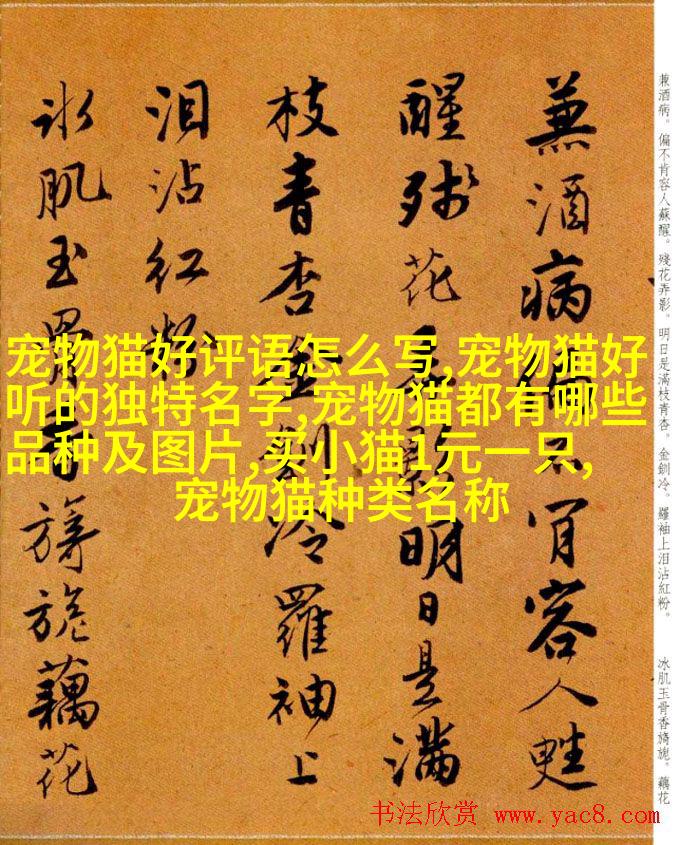 宠物猫好评语怎么写,宠物猫好
听的独特名字,宠物猫都有哪些
品种及图片,买小猫1元一只,
宠物猫种类名称
兼酒病偏不肯容人甦
醒殘花弄影明日是滿
枝青杏金釧冷羅袖上
泪沾紅粉
冰肌玉骨香旖旎藕花
兼酒病。偏不肯容人蘇醒。殘花弄影。明日是滿枝青杏。金釧冷。羅袖上泪沾紅粉。 冰肌玉骨香旖旎。藕花
书法欣赏 www.yac8.com